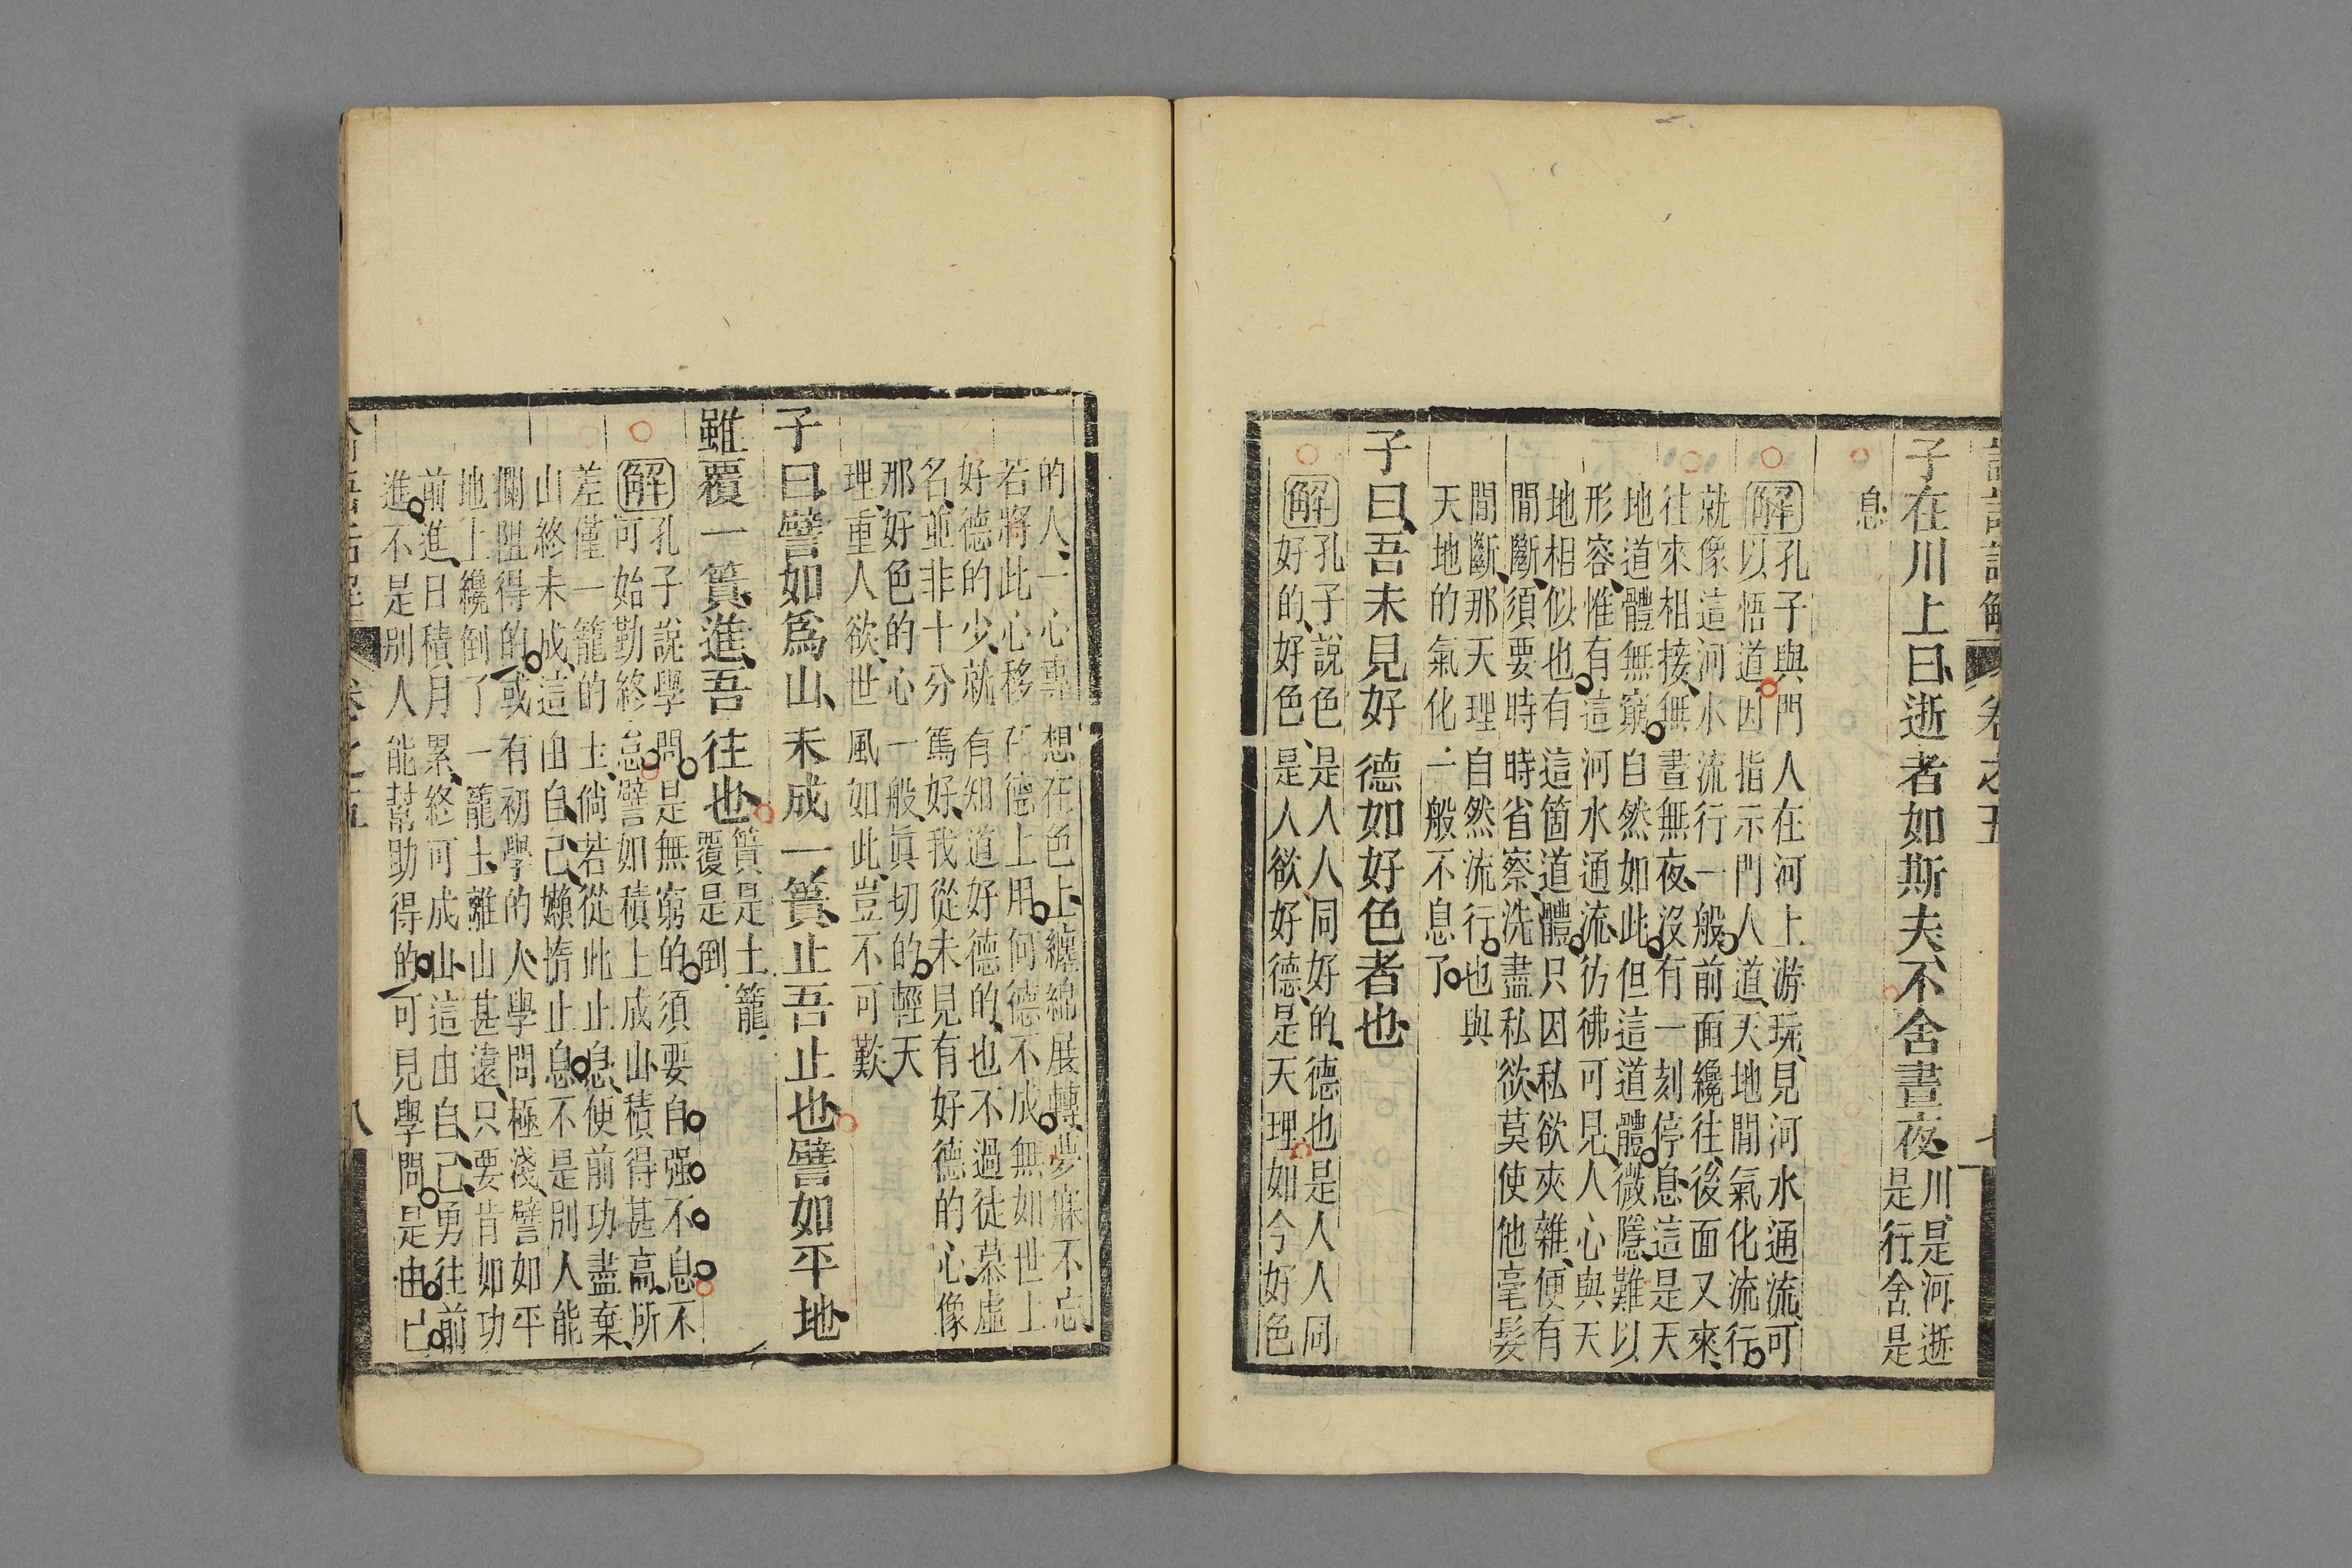 卷之五
子在川上曰、逝者如斯夫、不舍晝夜、
川是河逝
是行舍是
息
解孔子與門人在河上游玩、見河水通流、可
以悟道、因指示門人道、天地間氣化流行、
就像這河水流行一般、前面纔往、後面又來、
往來相接、無晝無夜、沒有一刻停息、這是天
地道體無窮、自然如此、但這道體微隱、難以
形容、惟有這河水通流、彷彿可見、人心與天
地相似也、有這箇道體、只因私欲夾雜、便有
間斷、須要時時省察、洗盡私欲、莫使他毫髮
間斷、那天理自然流行也與
天地的氣化一般不息了
子曰、吾未見好德如好色者也、
解孔子說色、是人人同好的、德也是人人同
好的、好色是人欲、好德是天理、如今好色
的人、一心專想在色上、纏綿展轉、夢寐不忘、
若將此心移在德上用、何德不成、無如世上
好德的少、就有知道好德的、也不過徒慕虛
名、並非十分篤好、我從未見有好德的心、像
那好色的心一般、眞切的輕天
理、重人欲、世風如此、豈不可歎、
子曰、譬如爲山、未成一簣、止吾止也、譬如平地、
雖覆一簣、進、吾往也、
簣是土籠
覆是倒
解孔子說學問是無窮的、須要自强不息、不
可始勤終怠、譬如積上成山、積得甚高、所
差僅一籠的土、倘若從此止息、便前功盡棄、
山終未成、這由自己、懶惰止息、不是別人能
攔阻得的、或有初學的人、學問極淺、譬如平
地上纔倒了一籠土、離山甚遠、只要肯如功
前進、日積月累、終可成山、這由自己、勇往前
進、不是別人能幫助得的、可見學問是由己
卷之五
八